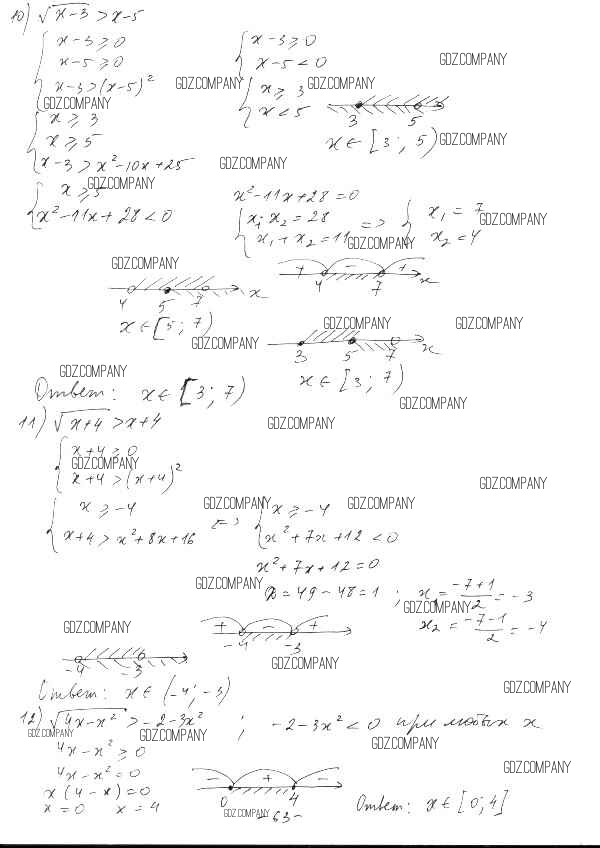 10) √(x-3) > x-5
{ x-3 ≥ 0
x-5 ≥ 0
x-3 > (x-5)²
{ x-3 ≥ 0
x-5 < 0
GDZ.COMPANY
GDZ.COMPANY
{ x ≥ 3
x < 5
GDZ.COMPANY
3 5
GDZ.COMPANY
{ x ≥ 3
x ≥ 5
x-3 > x²-10x+25
x ∈ [3; 5)
GDZ.COMPANY
GDZ.COMPANY
GDZ.COMPANY
{ x ≥ 5
x²-11x+28 < 0
x²-11x+28=0
{ x₁ x₂ = 28
x₁ + x₂ = 11
=> { x₁ = 7
x₂ = 4
GDZ.COMPANY
GDZ.COMPANY
GDZ.COMPANY
+ - +
4 7 x
4 5 7 x
x ∈ [5; 7)
GDZ.COMPANY
GDZ.COMPANY
GDZ.COMPANY
3 5 7 x
GDZ.COMPANY
x ∈ [3; 7)
Ответ: x ∈ [3; 7)
GDZ.COMPANY
11) √(x+4) > x+4
GDZ.COMPANY
{ x+4 ≥ 0
x+4 > (x+4)²
GDZ.COMPANY
GDZ.COMPANY
{ x ≥ -4
x+4 > x²+8x+16
GDZ.COMPANY
GDZ.COMPANY
<=> { x ≥ -4
x²+7x+12 < 0
x²+7x+12=0
GDZ.COMPANY
D = 49-48 = 1 ; x₁ = (-7+1)/2 = -3
GDZ.COMPANY
x₂ = (-7-1)/2 = -4
GDZ.COMPANY
+ - +
-4 -3
-4 -3
GDZ.COMPANY
Ответ: x ∈ (-4; -3)
GDZ.COMPANY
12) √(4x-x²) > -2-3x² ; -2-3x² < 0 при любых x
GDZ.COMPANY
GDZ.COMPANY
GDZ.COMPANY
4x-x² ≥ 0
GDZ.COMPANY
4x-x² = 0
x(4-x)=0
x=0 x=4
- + -
0 4
GDZ.COMPANY
Ответ: x ∈ [0; 4]
-63-